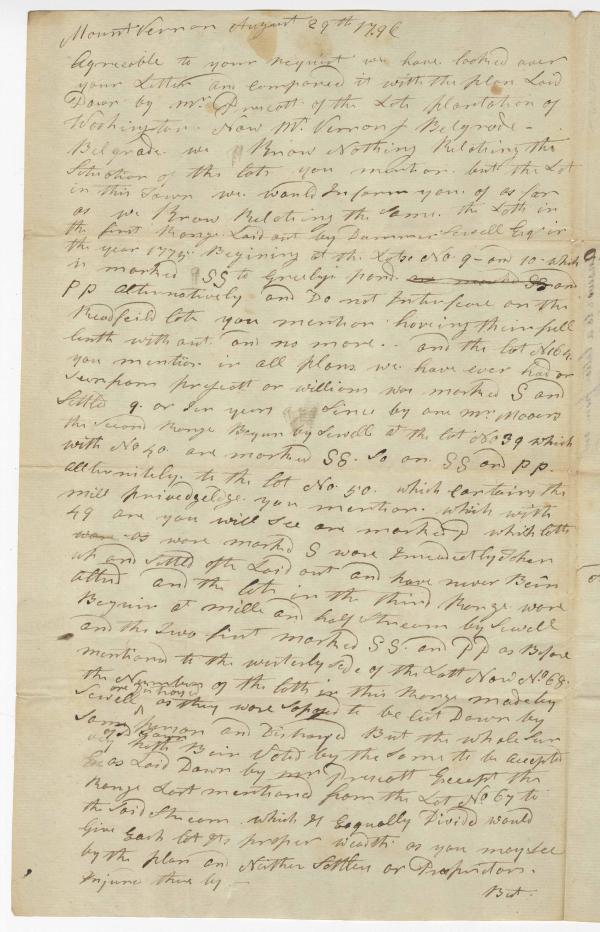 Mount Vernon August 29th 1796
Agreeable to your request we have looked over
your Letter and compared it with the plan Laid
Down by mr Prescott of the Lots plantation of
Washington Now Mt. Vernon & Belgrade -
Belgrade we Know Nothing Relating the
Situation of the lots you mention but the Lot
in this Town we would Inform you of as far
as we Know Relating the Same the Lotts in
the first Range Laid out by Dummer Sewell Esqr in
the year 1774 Begining at the Lots No 9 and 10 which
is marked SS to Greelys pond as marked SS and
PP alternatively and Do not Interfeare on the
Readfeild lots you mention having their full
lenth without and no more - and the lot No 64
you mention in all plans we have ever had or
Seen from prescott or williams was marked S and
Settled 9 or ten years Since by one mr
the Second Range Begun by Sewell at the lot No 39 which
with No 40 are marked SS. So on SS and PP.
alternitely to the lot No. 50 which contains the
mill privedgelige you mention which with
49 are you will See are marked P which lotts
were as ware marked S ware taken
up and Settled Laid out and have never Bein
altred and the lots in the third Range were
Begun at mills and half Stream by Sewell
and the two first marked SS and PP as Before
mentioned to the westerly Side of the Lott Now No 68.
the Numbers of the lotts in this Range made by
Sewell are as they were to be Cut Down by
Some person and But the whole Sur
hath Bein Voted by the Same to be accepted
as Laid Down by mr Prescott Except the
Range Last mentioned from the Lot No 67 to
the Said Stream which if Eaqually Divided would
Give Each lot its proper weadth as you may See
by the plan and Neither Settlers or Propriators.
Injured there by -
But